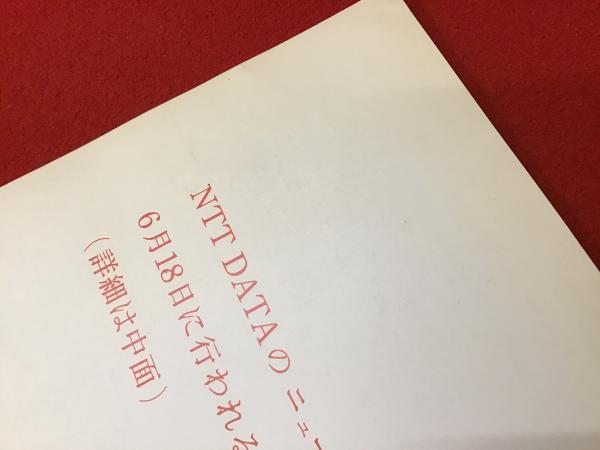 NTT DATAの ニュー
6月18日に行われる
（詳細は中面）